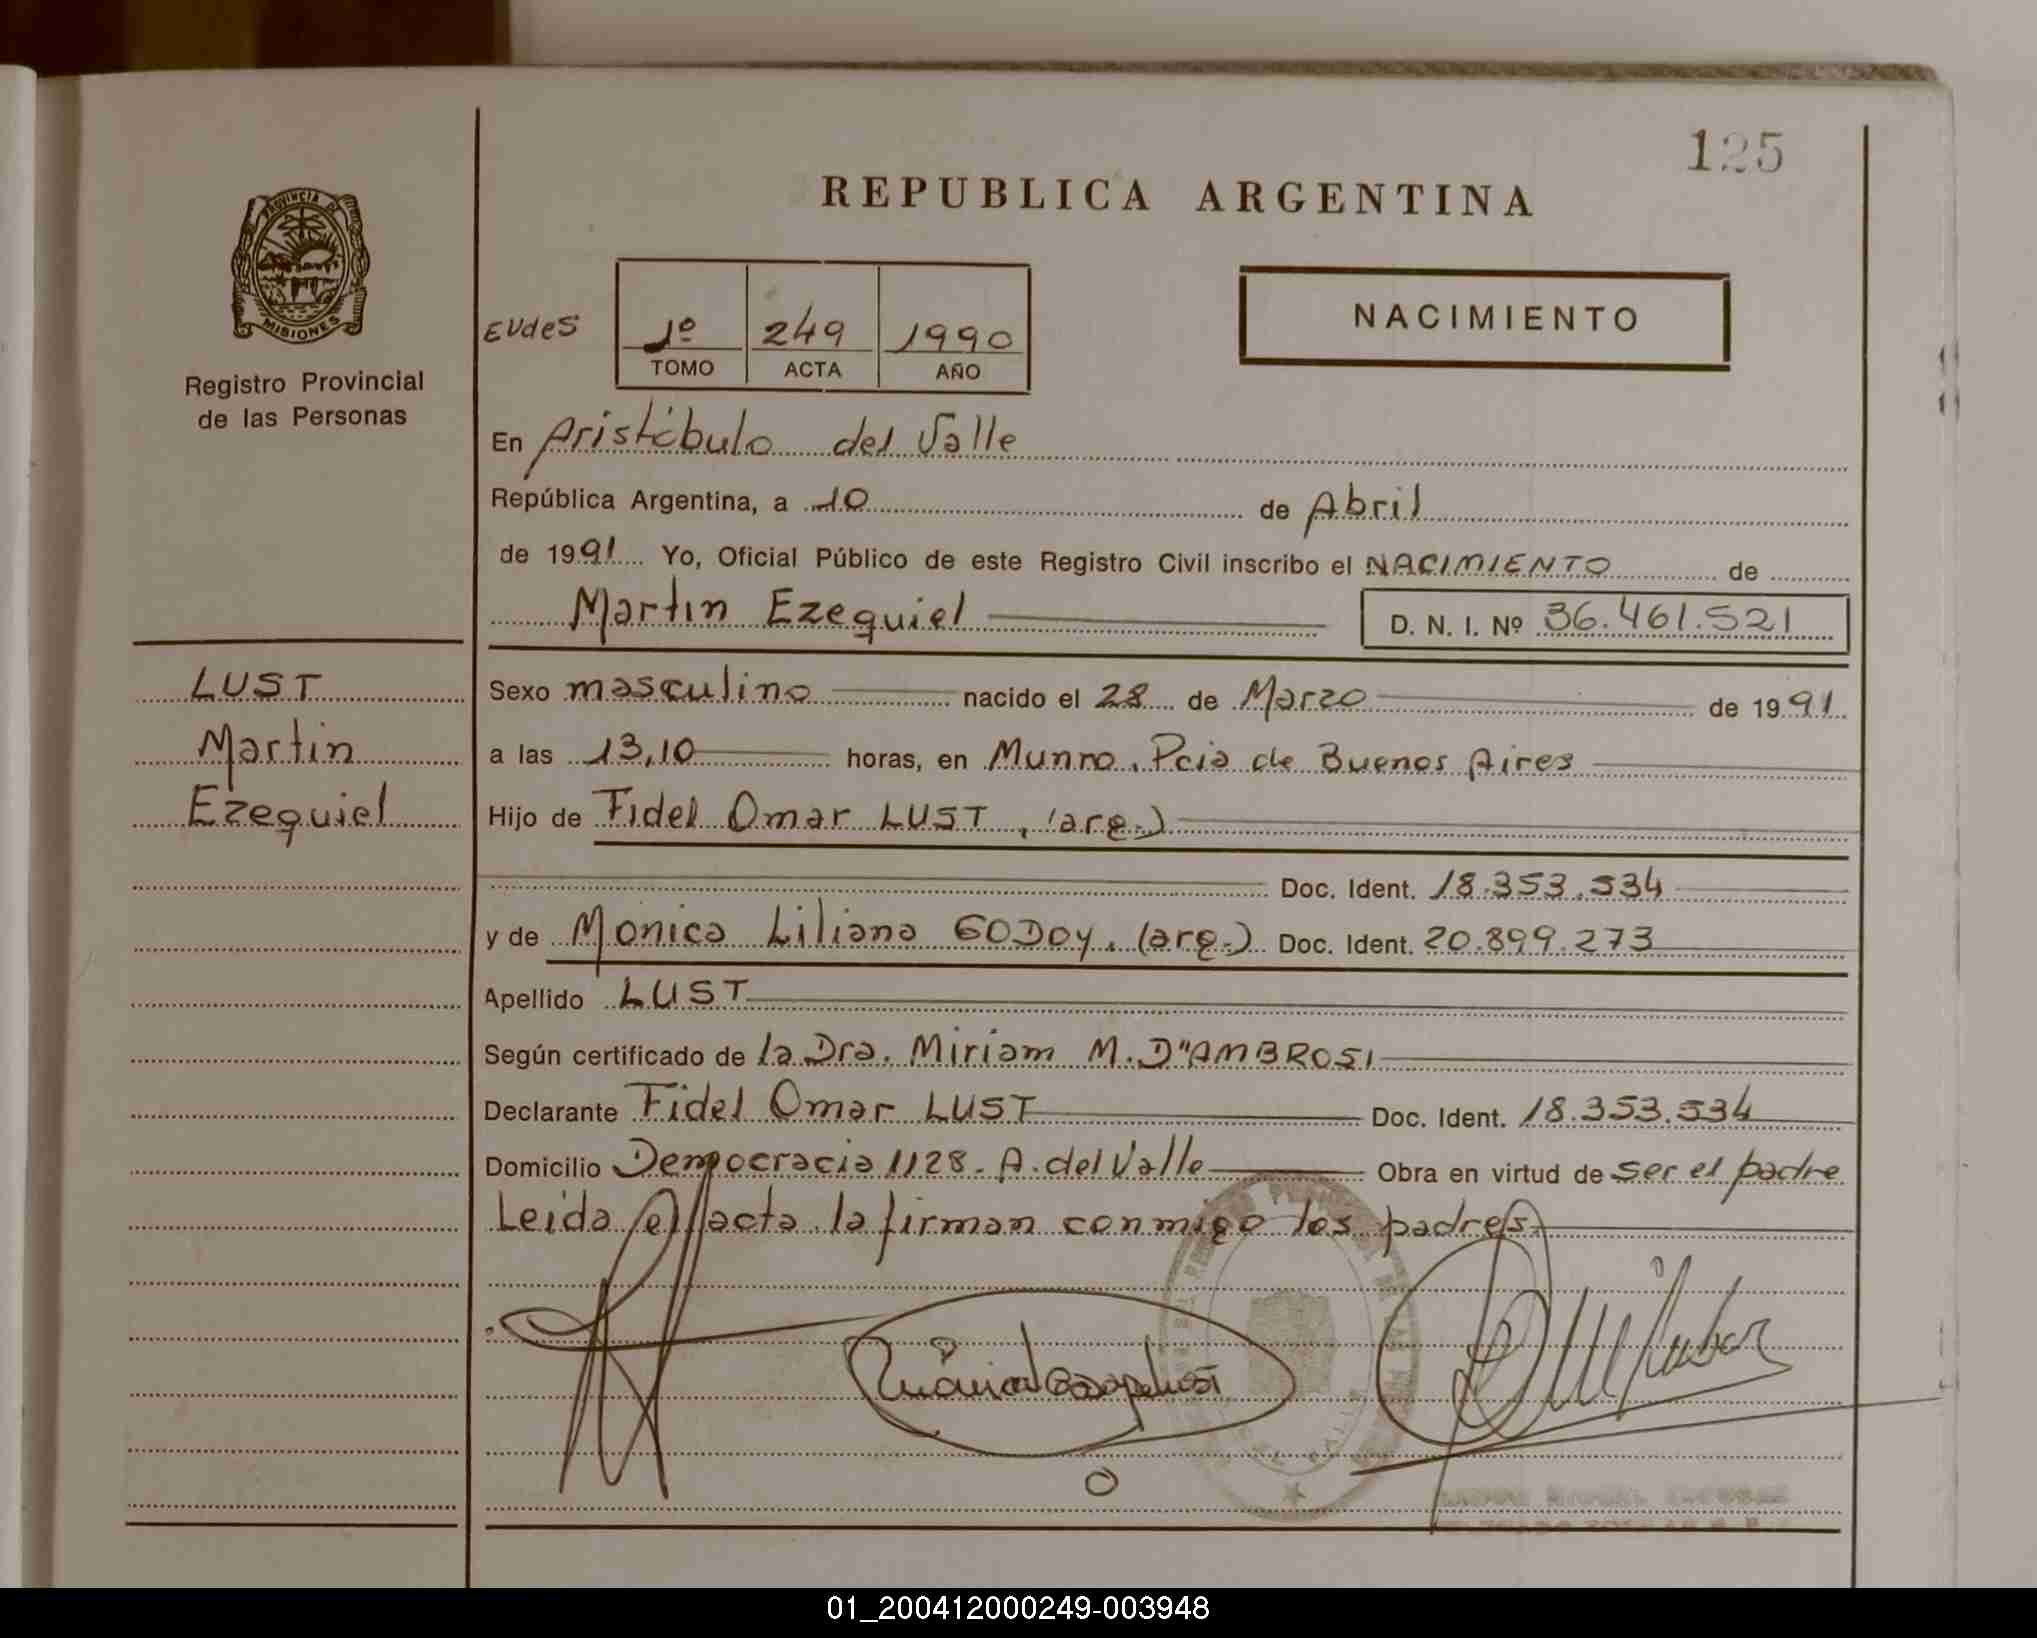 125
REPUBLICA ARGENTINA
PROVINCIA DE
MISIONES
Registro Provincial
de las Personas
EUdeS
1º 249 1990
TOMO ACTA AÑO
NACIMIENTO
En Aristóbulo del Valle
República Argentina, a 10 de Abril
de 1991 Yo, Oficial Público de este Registro Civil inscribo el NACIMIENTO de
Martin Ezequiel D. N. I. Nº 36.461.521
LUST
Martin
Ezequiel
Sexo masculino nacido el 28 de Marzo de 1991
a las 13,10 horas, en Munro, Pcia de Buenos Aires
Hijo de Fidel Omar LUST, (arg.)
Doc. Ident. 18.353.534
y de Monica Liliana GODOY, (arg.) Doc. Ident. 20.899.273
Apellido LUST
Según certificado de la Dra. Miriam M. D"AMBROSI
Declarante Fidel Omar LUST Doc. Ident. 18.353.534
Domicilio Democracia 1128- A. del Valle Obra en virtud de ser el padre
Leida el acta la firman conmigo los padres.
01_200412000249-003948